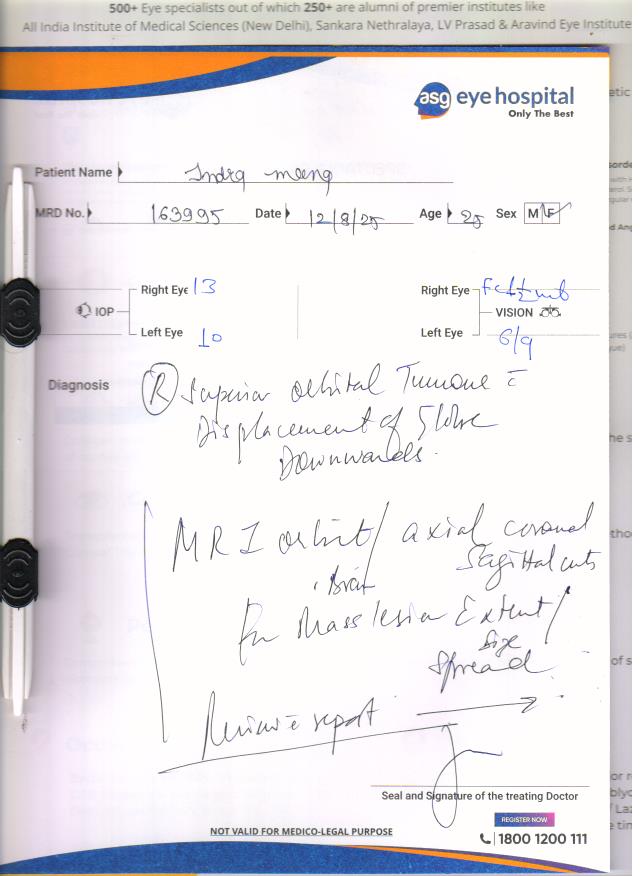 500+ Eye specialists out of which 250+ are alumni of premier institutes like
All India Institute of Medical Sciences (New Delhi), Sankara Nethralaya, LV Prasad & Aravind Eye Institute
asg eye hospital
Only The Best
Patient Name Indra meena
MRD No. 163995 Date 12/8/25 Age 25 Sex M F
IOP
Right Eye 13
Left Eye 10
VISION
Right Eye
Left Eye 6/9
Diagnosis (R) Superior orbital Tumour c̄
Displacement of Globe
Downwards.
MRI orbit/ axial coronal
Brain Sagittal cuts
for Mass lesion Extent/
Size
Spread
Review c̄ report
Seal and Signature of the treating Doctor
REGISTER NOW
NOT VALID FOR MEDICO-LEGAL PURPOSE
1800 1200 111